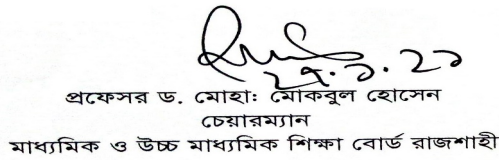 ২৭.১.২১
প্রফেসর ড. মোহা: মোকবুল হোসেন
চেয়ারম্যান
মাধ্যমিক ও উচ্চ মাধ্যমিক শিক্ষা বোর্ড রাজশাহী